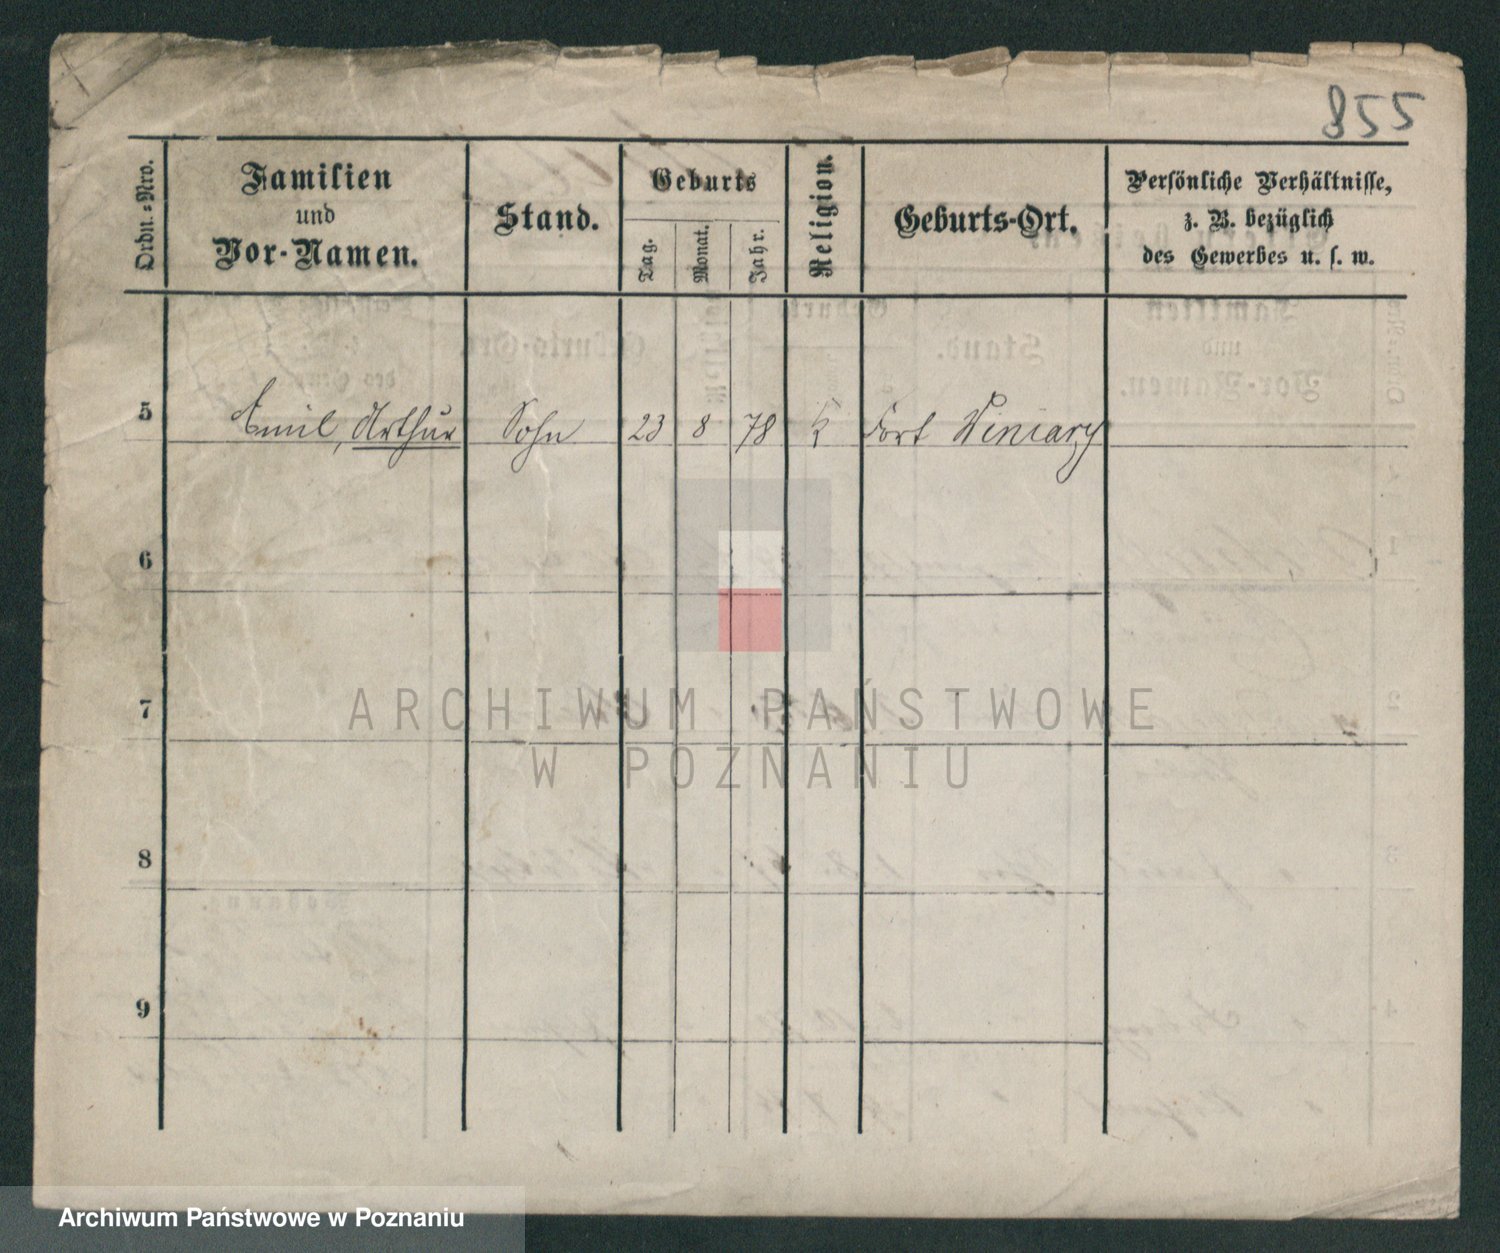 855
Ordn.-Nro.
Familien
und
Vor-Namen.
Stand.
Geburts
Tag.
Monat.
Jahr.
Religion.
Geburts-Ort.
Persönliche Verhältnisse,
z. B. bezüglich
des Gewerbes u. s. w.
5 Emil, Arthur Sohn 23 8 78 k Fort Winiary
6
7
8
9
ARCHIWUM PAŃSTWOWE
W POZNANIU
Archiwum Państwowe w Poznaniu